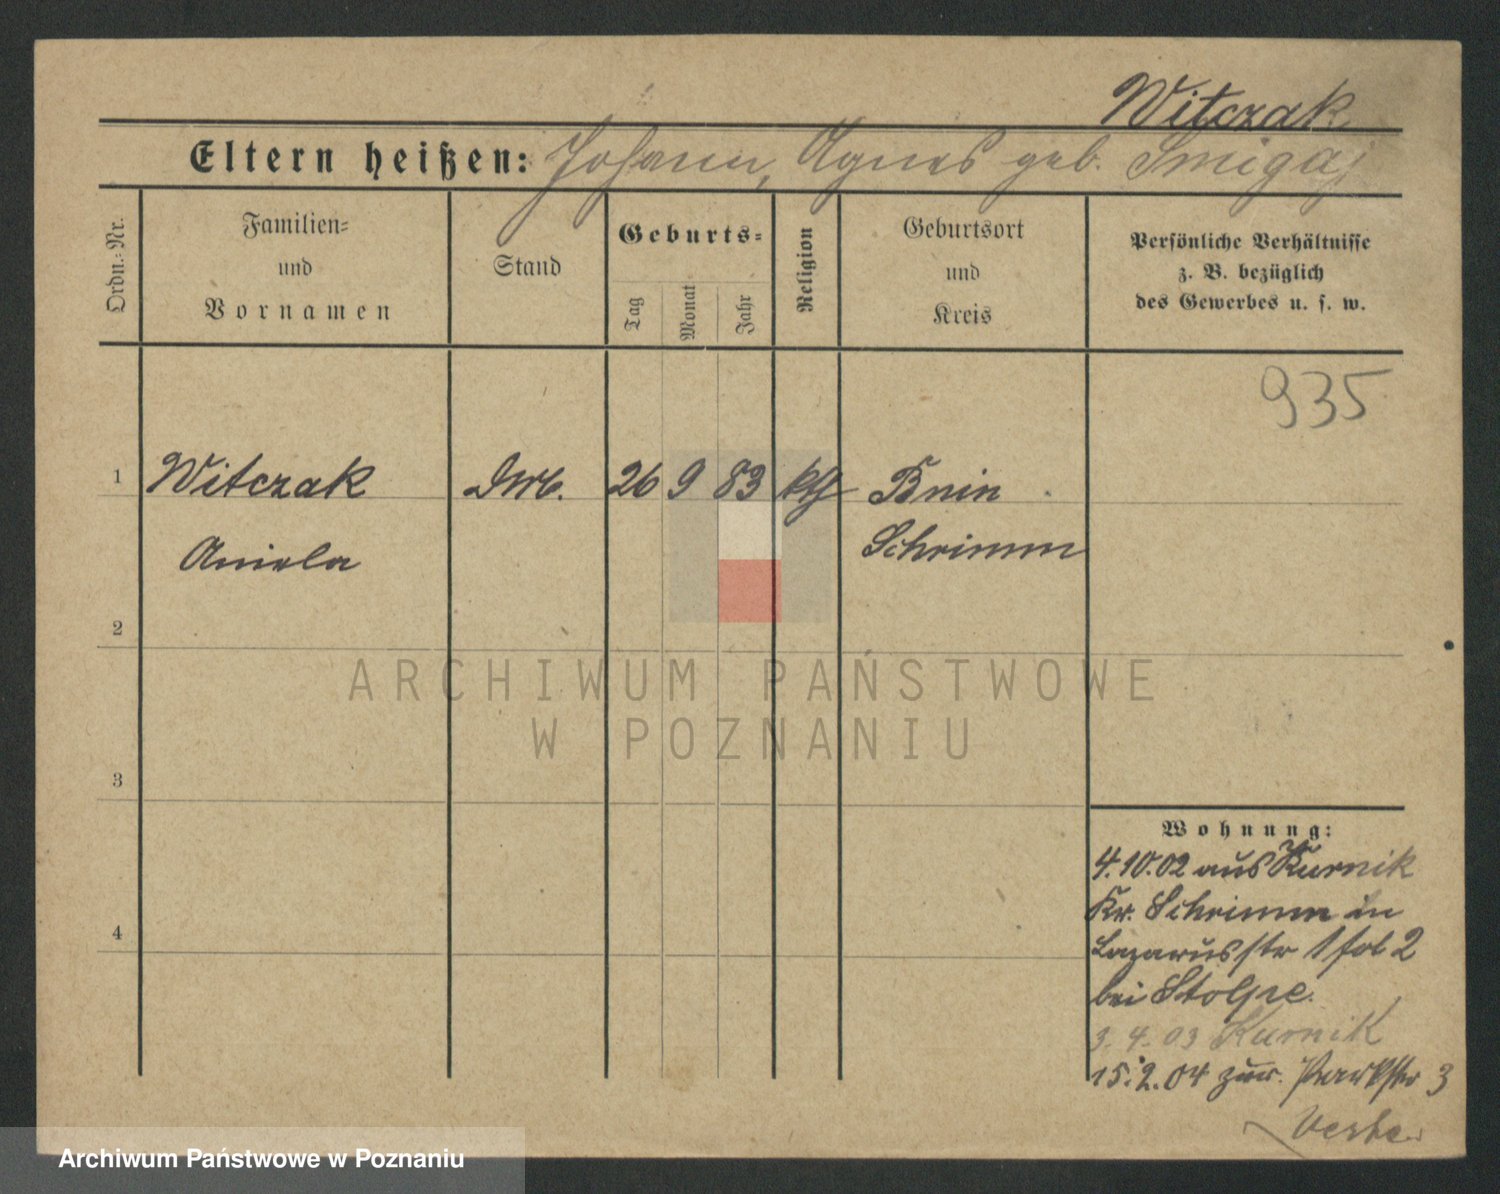 Witczak
Eltern heißen: Johann, Agnes geb. Smigaj
Ordn.-Nr.
Familien-
und
Vornamen
Stand
Geburts-
Tag
Monat
Jahr
Religion
Geburtsort
und
Kreis
Persönliche Verhältnisse
z. B. bezüglich
des Gewerbes u. s. w.
935
1 Witczak 26 9 83 kth Bnin
Aniela Schrimm
2
ARCHIWUM PAŃSTWOWE
W POZNANIU
3
Wohnung:
4.10.02 aus Kurnik
Kr. Schrimm in
4
Lazarusstr 1 fol 2
bei Stolpe.
3.4.03 Kurnik
15.2.04 zur. Parkstr 3
Archiwum Państwowe w Poznaniu